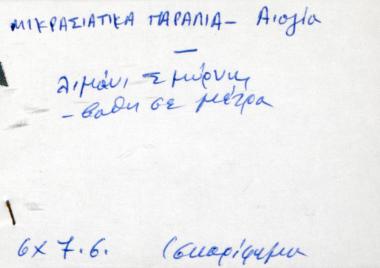 ΜΙΚΡΑΣΙΑΤΙΚΑ ΠΑΡΑΛΙΑ - Αιολία
—
Λιμάνι Σμύρνης
- βαθη σε μέτρα
6 x 7.6. (σκαρίφημα